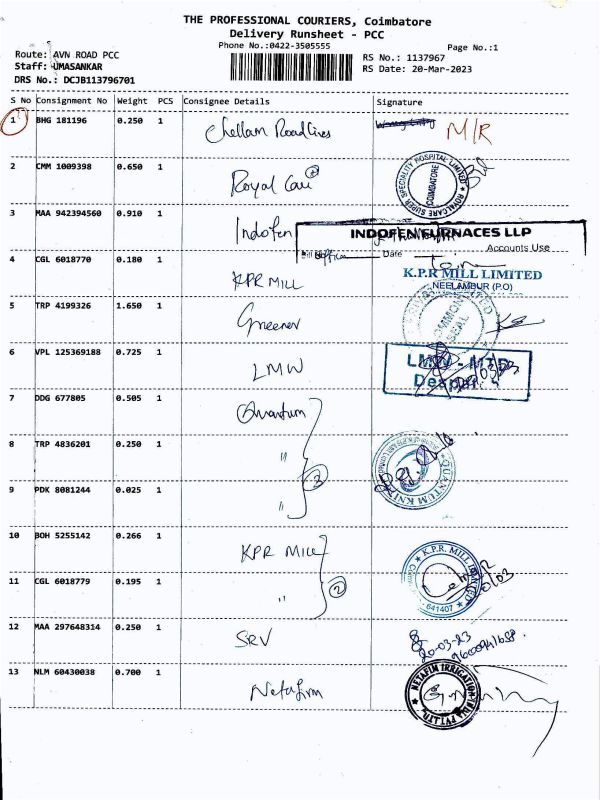 THE PROFESSIONAL COURIERS, Coimbatore
Delivery Runsheet - PCC
Phone No.:0422-3505555
Page No.:1
Route: AVN ROAD PCC
RS No.: 1137967
Staff: UMASANKAR
RS Date: 20-Mar-2023
DRS No.: DCJB113796701
S No Consignment No Weight PCS Consignee Details Signature
1 BHG 181196 0.250 1 Chellam Roadlines M/R
2 CMM 1009398 0.650 1 Royal Care ROYALCARE SUPER SPECIALITY HOSPITAL LIMITED COIMBATORE
3 MAA 942394560 0.910 1 Indofen INDOFEN FURNACES LLP
Date Accounts Use
4 CGL 6018770 0.180 1 KPR MILL K.P.R MILL LIMITED
NEELAMBUR (P.O)
5 TRP 4199326 1.650 1 Greener COMMON SEAL
6 VPL 125369188 0.725 1 LMW LMW - MTD
7 DDG 677805 0.505 1 Quantum
8 TRP 4836201 0.250 1 " 3 QUANTUM KNITS
9 PDK 8081244 0.025 1 "
10 BOH 5255142 0.266 1 KPR MILL K.P.R. MILL LIMITED
11 CGL 6018779 0.195 1 " 2 641407
12 MAA 297648314 0.250 1 SRV 20-03-23
13 NLM 60430038 0.700 1 Netafim NETAFIM IRRIGATION INDIA PVT LTD